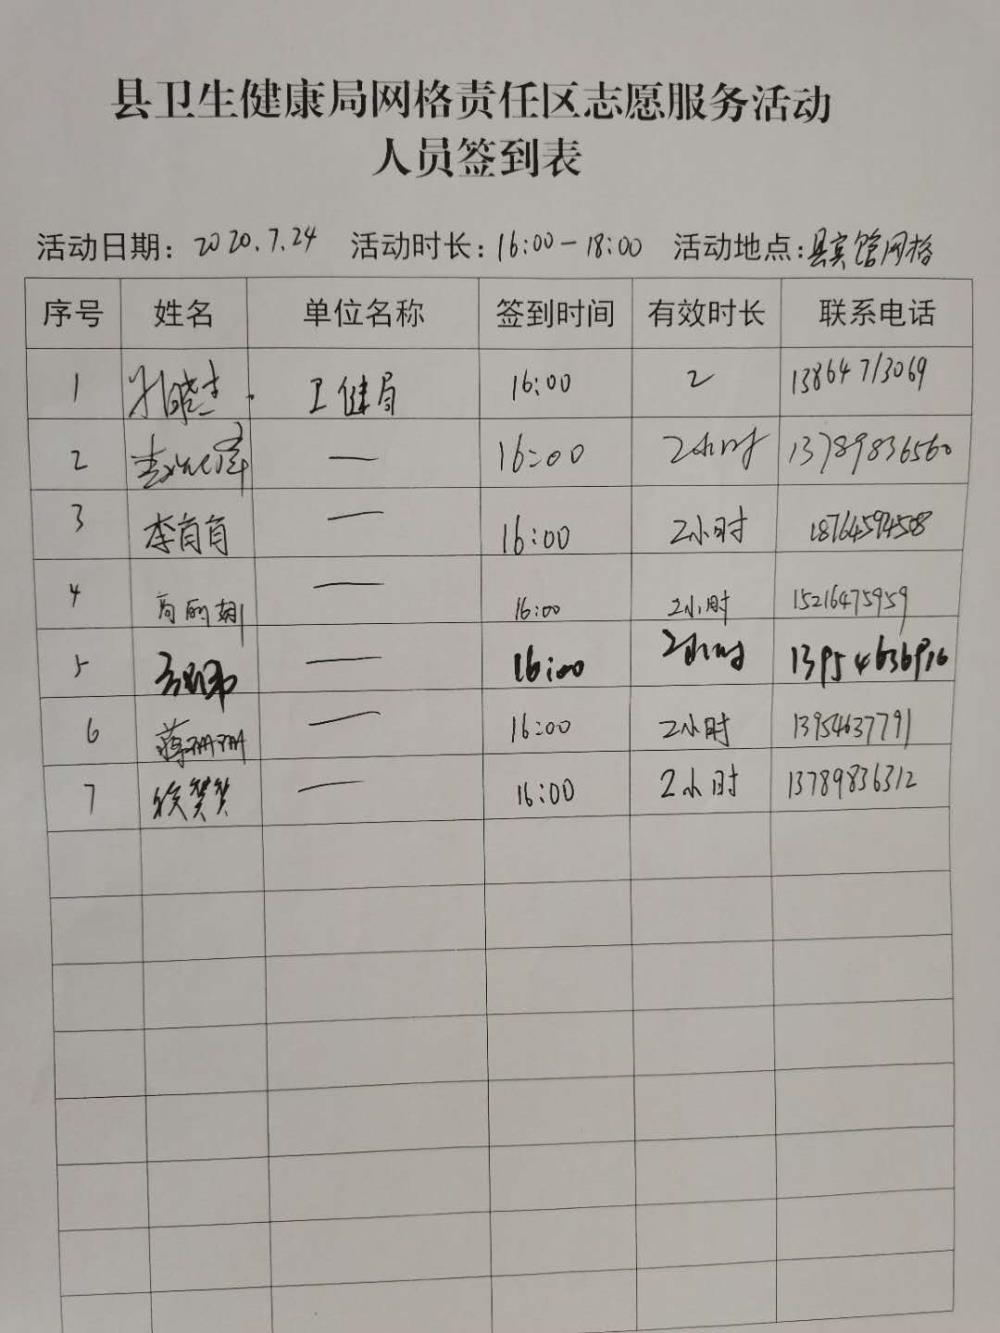 县卫生健康局网格责任区志愿服务活动
人员签到表
活动日期：2020.7.24 活动时长：16:00-18:00 活动地点：县宾馆网格
序号 姓名 单位名称 签到时间 有效时长 联系电话
1 卫健局 16:00 2 13864713069
2 — 16:00 2小时 13789836560
3 李肖肖 — 16:00 2小时 18764594508
4 — 16:00 2小时 15216475959
5 — 16:00 2小时 13954636916
6 蒋珊珊 — 16:00 2小时 13954637791
7 徐赞赞 — 16:00 2小时 13789836312